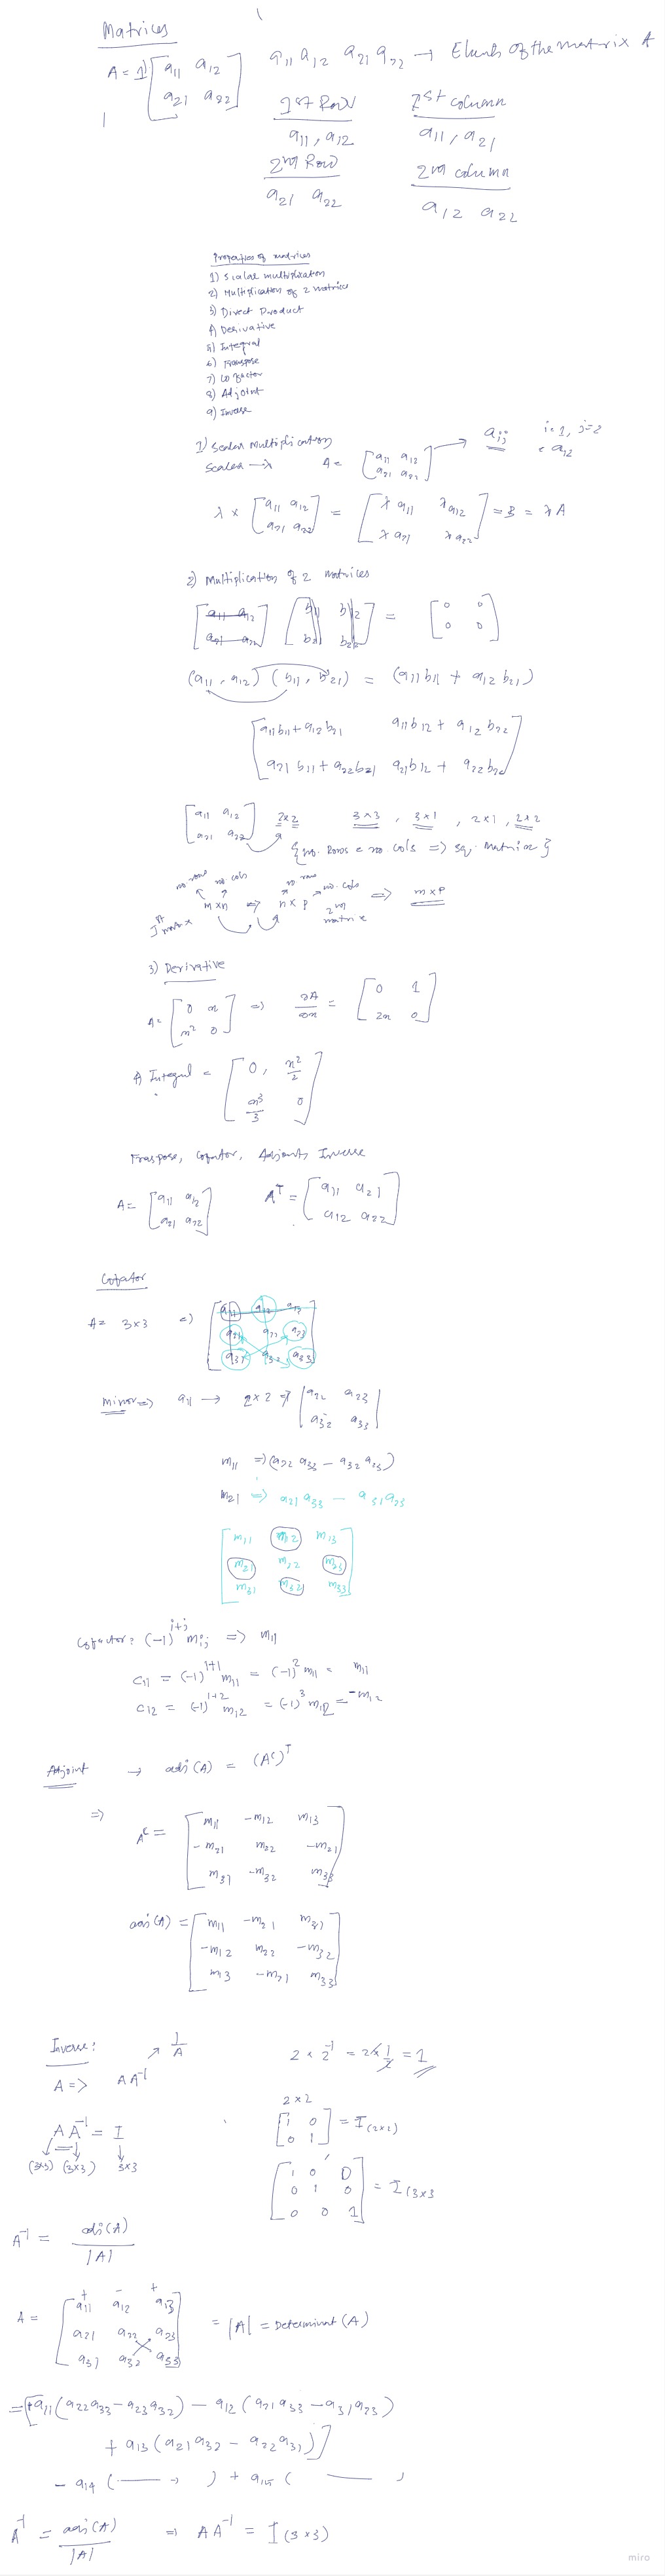 Matrices
A = 1) [a11 a12
a21 a22]
a11 a12 a21 a22 → of the matrix A
1st Row
a11, a12
2nd Row
a21 a22
1st column
a11, a21
2nd column
a12 a22
Properties of matrices
1) Scalar multiplication
2) Multiplication of 2 matrices
3) Direct Product
4) Derivative
5) Integral
6) Transpose
7) Cofactor
8) Adjoint
9) Inverse
1) Scalar Multiplication
Scalar → λ A = [a11 a12
a21 a22] → aij i=1, j=2
= a12
λ × [a11 a12
a21 a22] = [λa11 λa12
λa21 λa22] = B = λA
2) Multiplication of 2 matrices
[a11 a12
a21 a22] [b11 b12
b21 b22] = [0 0
0 0]
(a11, a12) (b11, b21) = (a11b11 + a12b21)
[a11b11+a12b21 a11b12 + a12b22
a21b11+a22b21 a21b12 + a22b22]
[a11 a12
a21 a22] 2×2 3×3, 3×1, 2×1, 2×2
{no. Rows = no. cols => sq. matrix}
no rows no. cols no. rows no. cols
m×n => n×p => m×p
1st matrix 2nd matrix
3) Derivative
A = [0 x
x² 0] => ∂A/∂x = [0 1
2x 0]
4) Integral = [0, x²/2
x³/3 0]
Traspose, Cofactor, Adjoint, Inverse
A = [a11 a12
a21 a22] Aᵀ = [a11 a21
a12 a22]
Cofator
A = 3×3 => [a11 a12 a13
a21 a22 a23
a31 a32 a33]
minor => a11 → 2×2 of |a22 a23
a32 a33|
m11 => (a22 a33 - a32 a23)
m21 => a21 a33 - a31 a23
[m11 m12 m13
m21 m22 m23
m31 m32 m33]
Cofactor: (-1)^(i+j) mij => m11
c11 = (-1)^(1+1) m11 = (-1)² m11 = m11
c12 = (-1)^(1+2) m12 = (-1)³ m12 = -m12
Adjoint → adj(A) = (Aᶜ)ᵀ
=> Aᶜ = [m11 -m12 m13
-m21 m22 -m21
m31 -m32 m33]
adj(A) = [m11 -m21 m31
-m12 m22 -m32
m13 -m21 m33]
Inverse:
A => AA⁻¹ ↗ 1/A
2 × 2⁻¹ = 2×1/2 = 1
AA⁻¹ = I
(3×3) (3×3) 3×3
2×2
[1 0
0 1] = I(2×2)
[1 0 0
0 1 0
0 0 1] = I(3×3
A⁻¹ = adj(A)/|A|
+ - +
A = [a11 a12 a13
a21 a22 a23
a31 a32 a33] = |A| = Determinant(A)
= [+a11(a22a33-a23a32) - a12(a21a33-a31a23)
+ a13(a21a32 - a22a31)]
- a14( ) + a15( )
A⁻¹ = adj(A)/|A| => AA⁻¹ = I(3×3)
miro